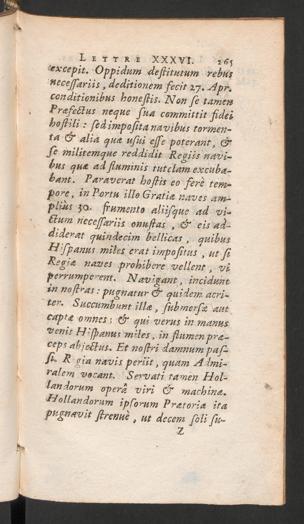 LETTRE XXXVI. 265
excepit. Oppidum destitutum rebus
necessariis, deditionem fecit 27. Apr.
conditionibus honestis. Non se tamen
Præfectus neque sua committit fidei
hostili: sed imposita navibus tormen-
ta & alia quæ usui esse poterant, &
se militemque reddidit Regiis navi-
bus quæ ad fluminis tutelam excuba-
bant. Paraverat hostis eo ferè tem-
pore, in Portu illo Gratiæ naves am-
plius 30. frumento aliisque ad vi-
ctum necessariis onustas, & eis ad-
diderat quindecim bellicas, quibus
Hispanus miles erat impositus, ut si
Regiæ naves prohibere vellent, vi
perrumperent. Navigant, incidunt
in nostras: pugnatur & quidem acri-
ter. Succumbunt illæ, submersæ aut
captæ omnes; & qui verus in manus
venis Hispanus miles, in flumen præ-
ceps abjectus. Et nostri damnum pas-
si. Regia navis periit, quam Admi-
ralem vocant. Servati tamen Hol-
landorum operâ viri & machinæ.
Hollandorum ipsorum Prætoria ita
pugnavit strenuè, ut decem soli su-
Z